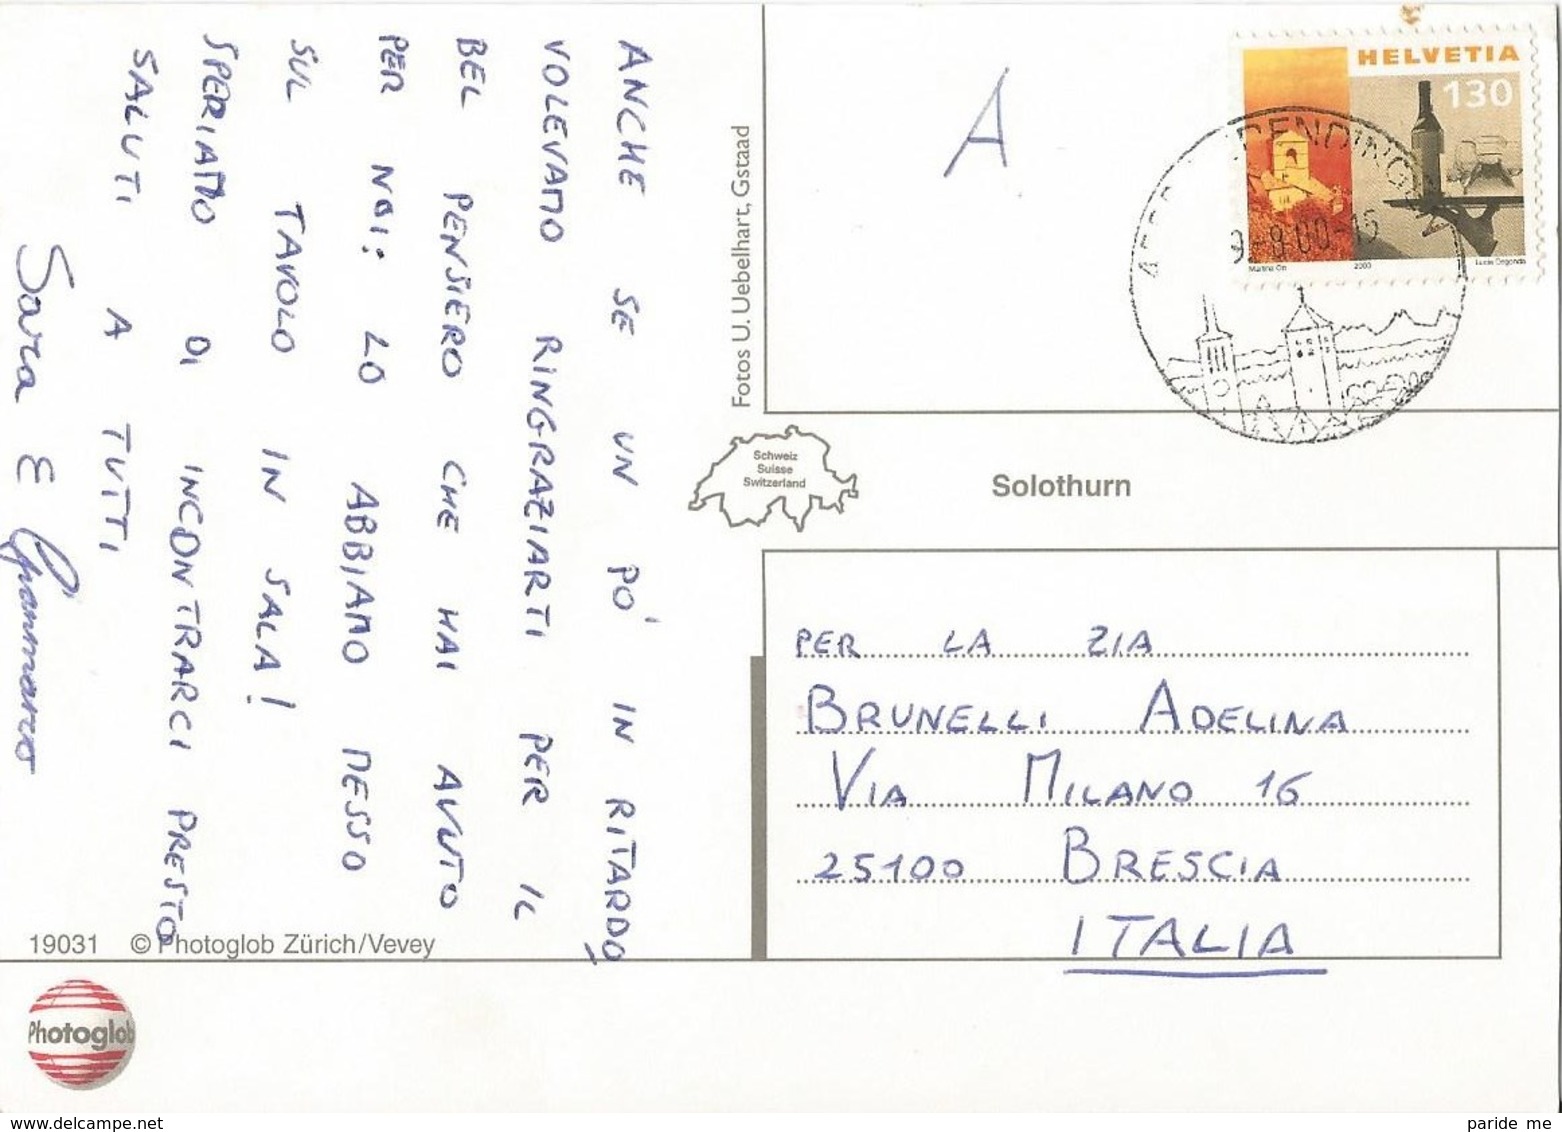 ANCHE SE UN PO' IN RITARDO,
VOLEVAMO RINGRAZIARTI PER IL
BEL PENSIERO CHE HAI AVUTO
PER NOI: LO ABBIAMO MESSO
SUL TAVOLO IN SALA!
SPERIAMO DI INCONTRARCI PRESTO
SALUTI A TUTTI
Sara E Gianmarco
19031 © Photoglob Zürich/Vevey
Photoglob
Fotos U. Uebelhart, Gstaad
Schweiz
Suisse
Switzerland
Solothurn
A
HELVETIA
130
2000
DENDINGEN
PER LA ZIA
BRUNELLI ADELINA
VIA MILANO 16
25100 BRESCIA
ITALIA
www.delcampe.net
paride me